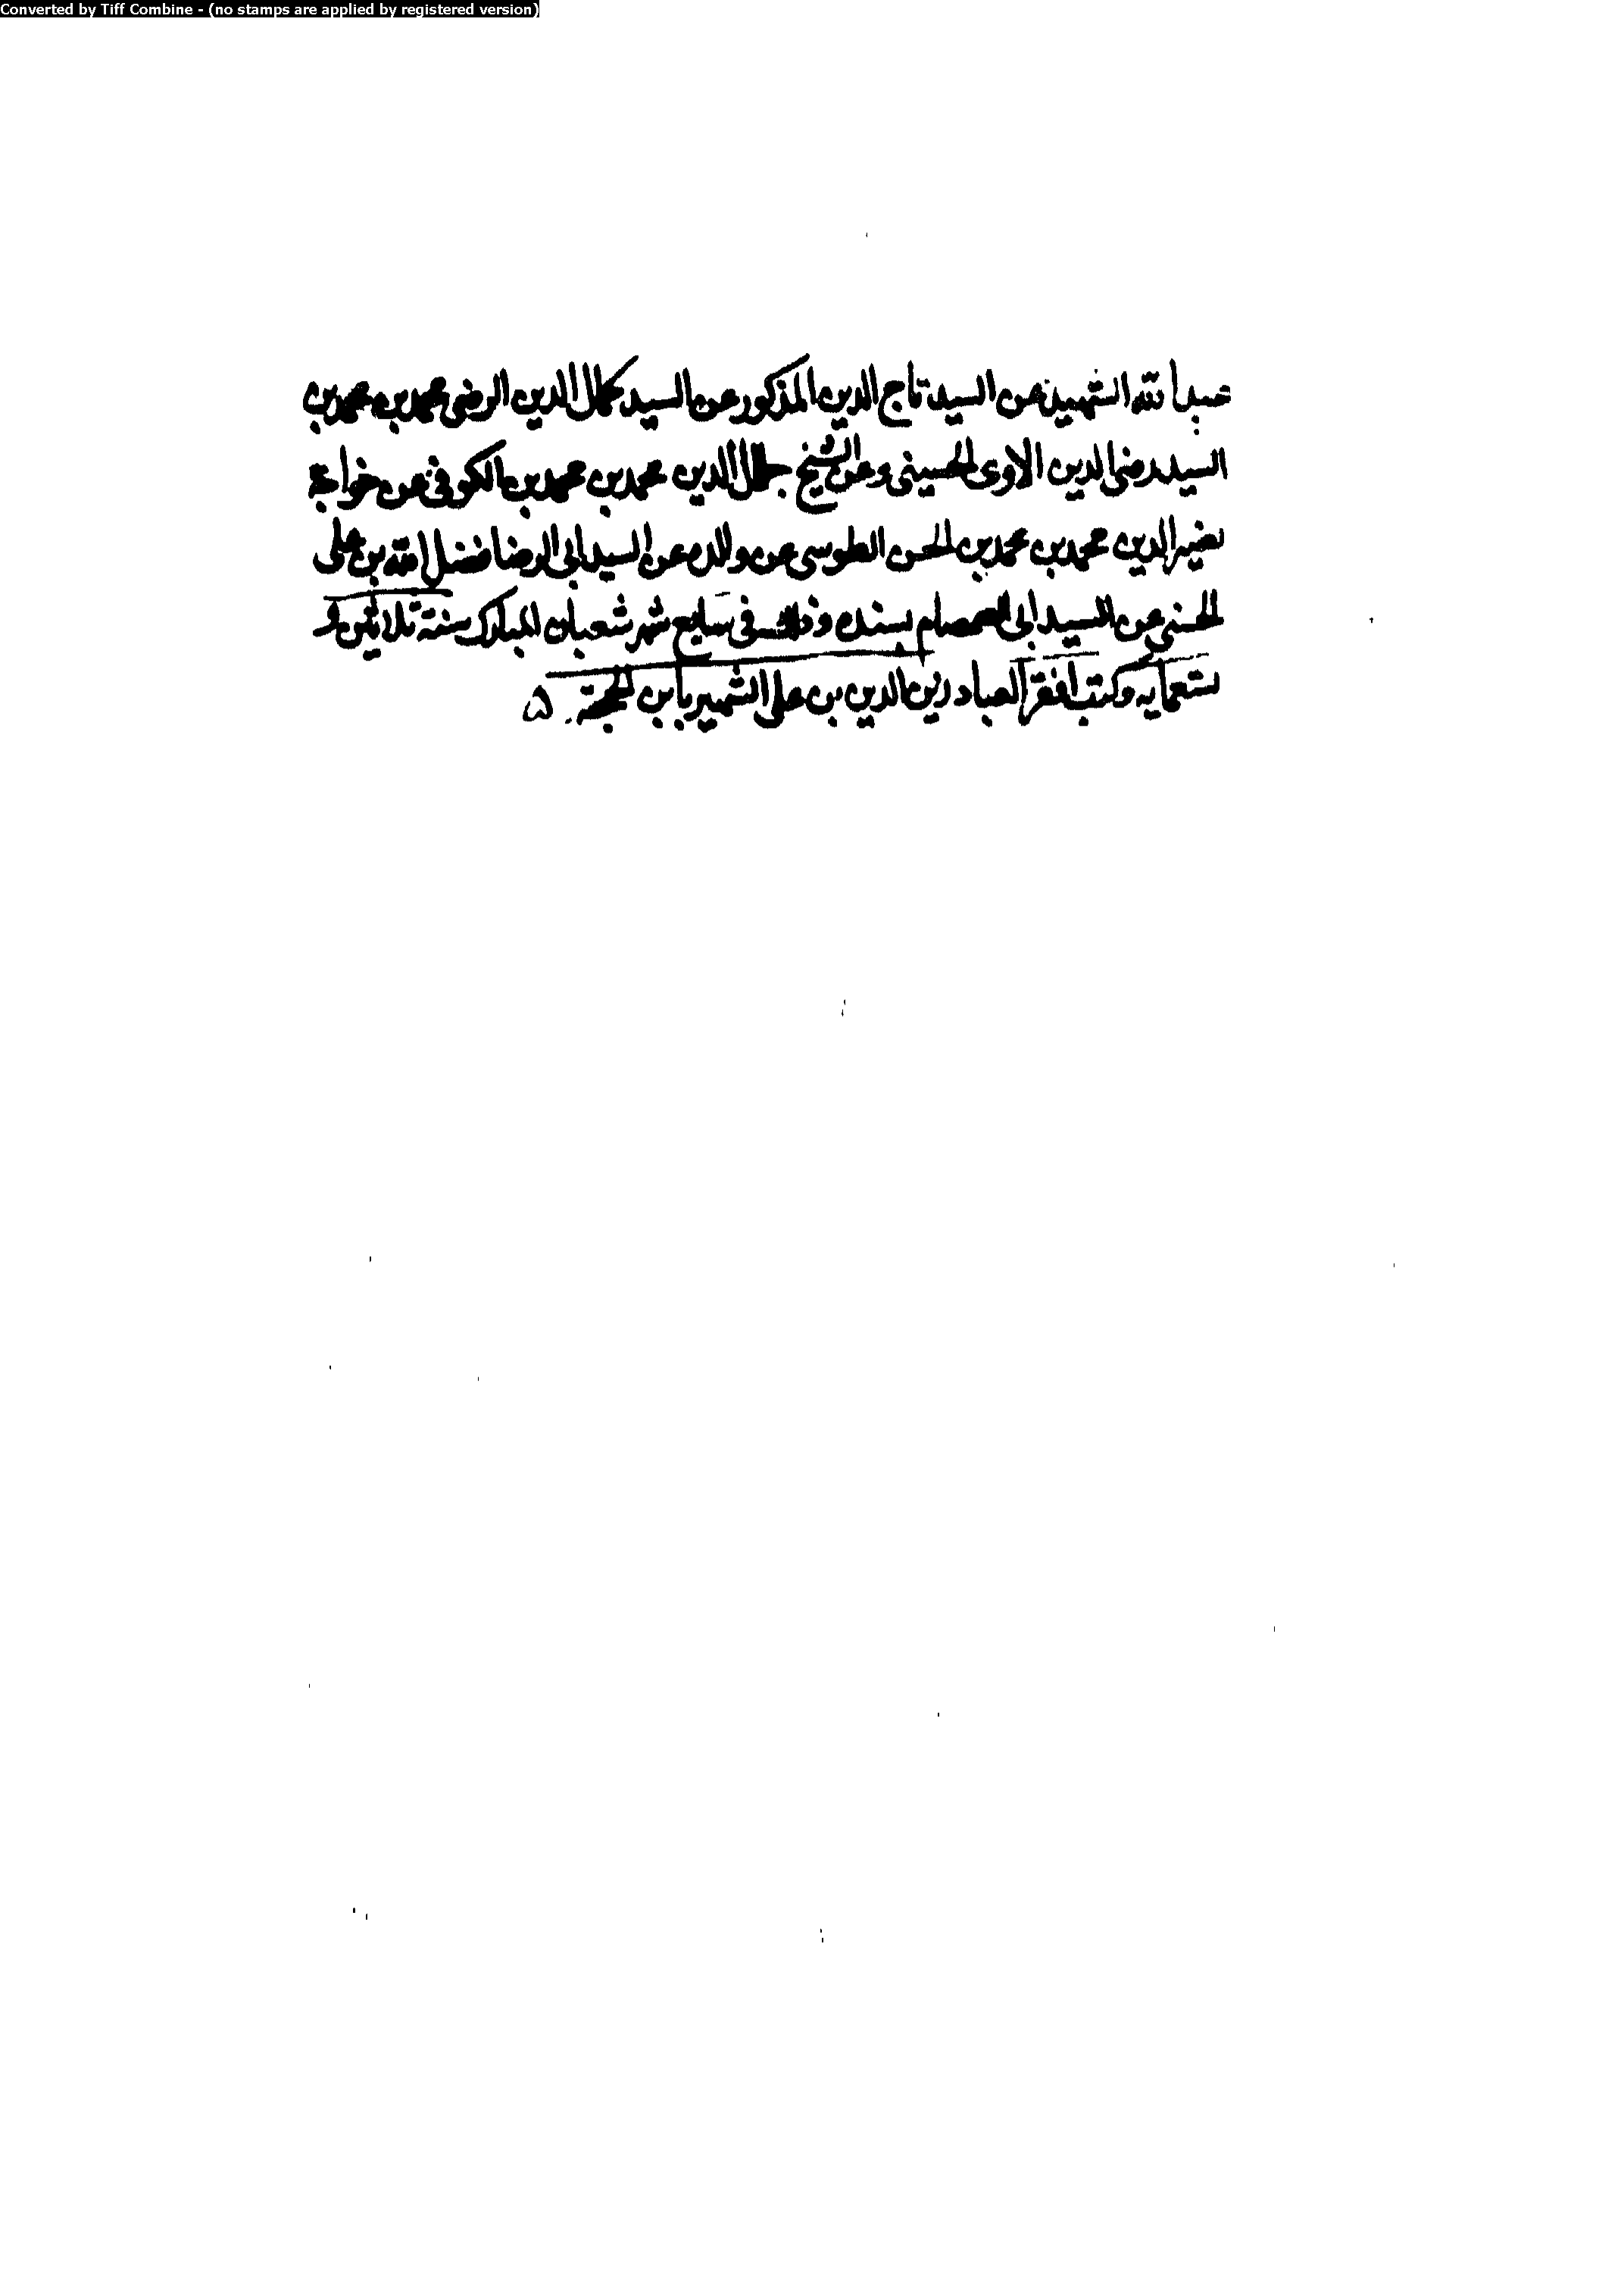 Converted by Tiff Combine - (no stamps are applied by registered version)
عبدالله الشهيد عن السيد تاج الدين المذكور عن السيد كمال الدين الرضى محمد بن محمد بن
السيد رضى الدين الاوى الحسينى وعن الشيخ جمال الدين محمد بن محمد بن الكوفى عن خواجه
نصير الدين محمد بن محمد بن الحسن الطوسى عن والده عن السيد ابى الرضا فضل الله بن على
الحسنى عن السيد ابى الصمصام بسنده وذلك فى سابع شهر شعبان المبارك سنة ثلاثين و
تسعمايه وكتب افقر العباد زين الدين بن على الشهير بابن الحجة